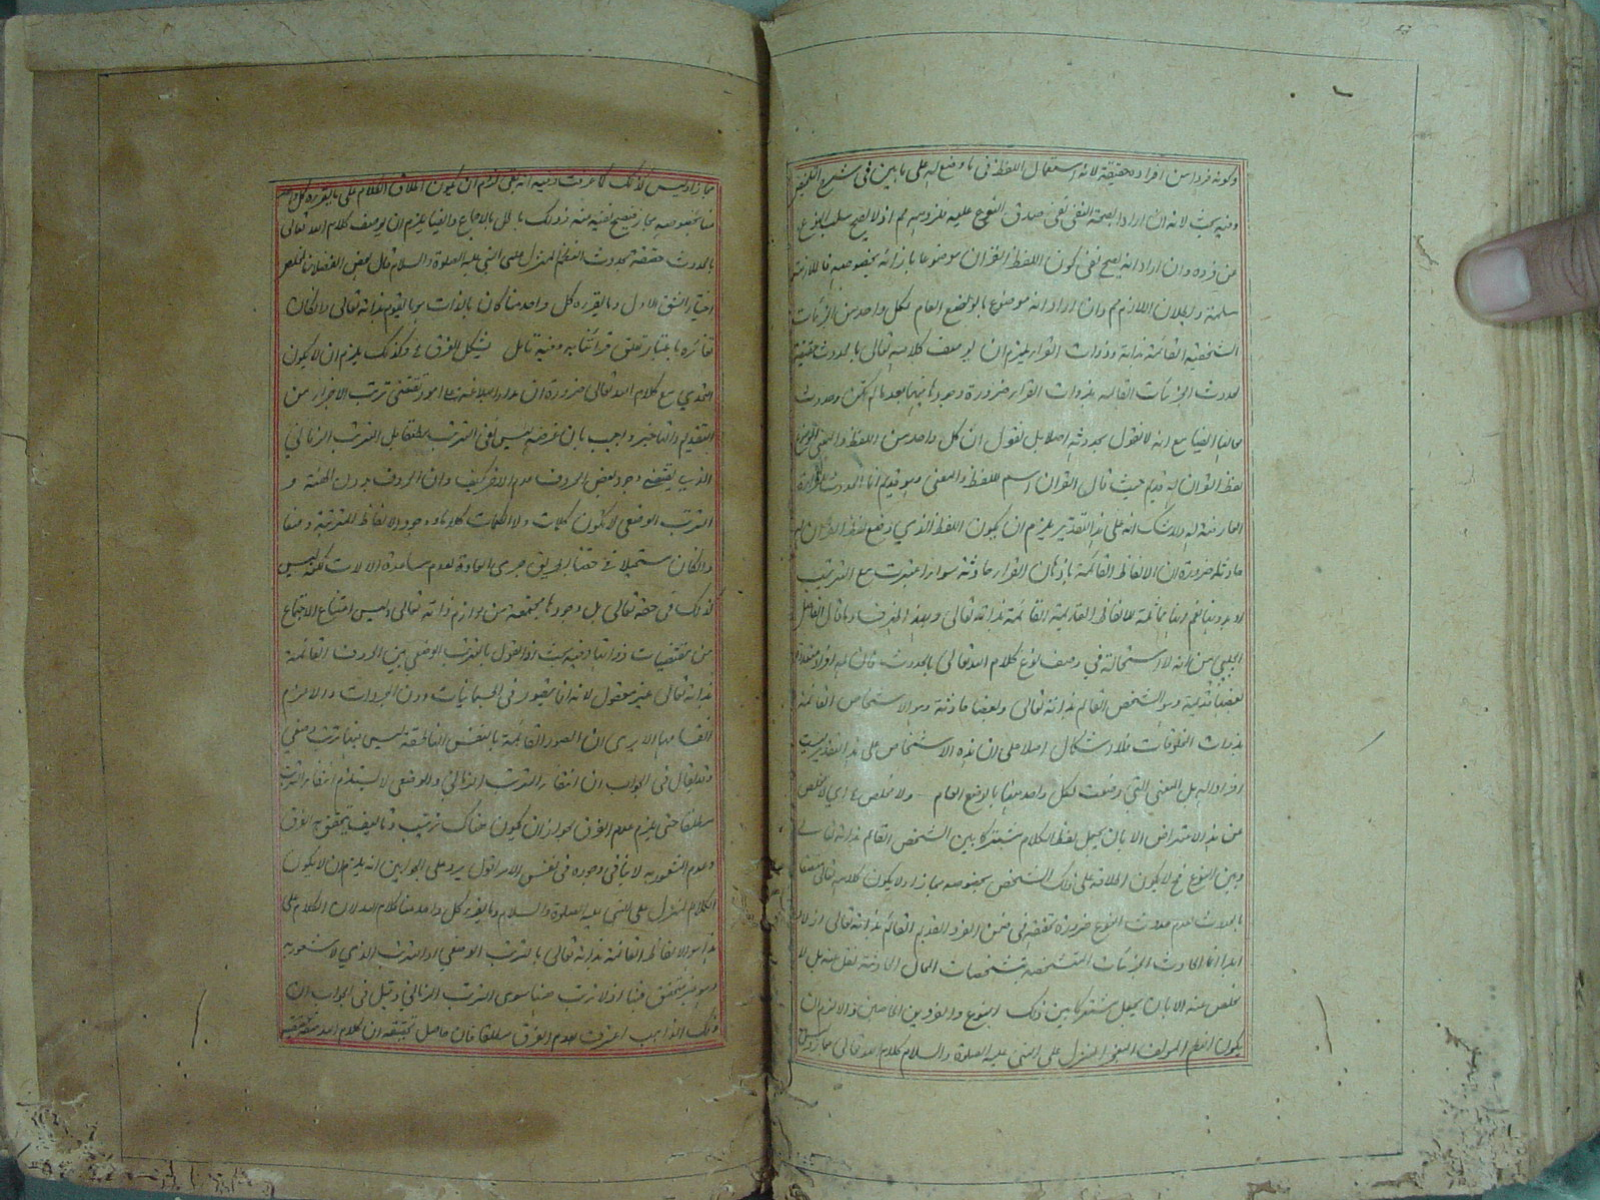 وكونه فردا من افراده حقيقة لانه استعمال اللفظ فى ما وضع له على ما بين فى شرح التلخيص
وفيه بحث لانه ان اراد بصحة النفى نفى صدق النوع عليه فلزومه مم اذ لا يصح سلب النوع
عن فرده وان اراد انه يصح نفى كون اللفظ القران موضوعا بازائه بخصوصه فالملازمة
مسلمة وبطلان اللازم مم وان اراد انه موضوع بالوضع العام لكل واحد من الجزئيات
الشخصية القائمة بذاته وذوات القراء يلزم ان يوصف كلامه تعالى بالحدوث حقيقة
لحدوث الجزئيات القائمه بذوات القراء ضرورة وجودها فيها بعد ما لم تكن وحدوث
ايضا مع انه لا نقول بحدوثه اصلا بل نقول ان كل واحد من اللفظ والمعنى
لفظ القران له قديم حيث قال القران اسم للفظ والمعنى وهو قديم انما الحدوث
العارضة له ولا شك انه على هذا التقدير يلزم ان يكون اللفظ الذي وضع لفظ القران له
حادثا ضرورة ان الالفاظ القائمة باذهان القراء حادثة سواء اعتبرت مع الترتيب
او بدونها نعم انها مماثلة للالفاظ القديمة القائمة بذاته تعالى وبهذا اندفع ما قال الفاضل
الچلپي من انه لا استحالة في وصف نوع كلام الله تعالى بالحدوث فان له افراد متعددة
بعضها قديمة وهو الشخص القائم بذاته تعالى وبعضها حادثة وهو الاشخاص القائمة
بذوات المخلوقات فلا اشكال اصلا على ان هذه الاشخاص على هذا التقدير ليست
افراد له بل المعنى التى وضعت لكل واحد منها بالوضع العام ولا مخلص
عن هذا الاعتراض الا بان يجعل لفظ الكلام مشتركا بين الشخص القائم بذاته تعالى
وبين النوع فح لا يكون اطلاقه على ذلك الشخص بخصوصه مجازا ولا يكون كلامه تعالى متصفا
بالحدوث لعدم حدوث النوع ضرورة تحققه فى ضمن الفرد القديم القائم بذاته تعالى ازلا و
ابدا انما الحادث الجزئيات المتشخصه بتشخصات المحال الحادثة
مخلص عنه الا بان يجعل مشتركا بين ذلك النوع والفردين الخاصين والا لزم ان
يكون النظم المؤلف المعجز المنزل على النبى عليه الصلوة والسلام كلام الله تعالى مجازا وليس
مجازا وليس كذلك كما عرفت وفيه انه بل لزم ان يكون اطلاق الكلام على ما يقرءه كل واحد
منا بخصوصه مجاز فيصح نفيه منه وذلك باطل بالاجماع وايضا يلزم ان يوصف كلام الله تعالى
بالحدوث حقيقة لحدوث النظم المنزل على النبي عليه الصلوة والسلام قال بعض الفضلاء المخلص
اختيار الشق الاول وما يقرءه كل واحد منا كان بالذات هو ما يقوم بذاته تعالى وان كان
تغائره باعتبار تعلق قراءتنا به وفيه تامل يشكل الفرق وكذلك يلزم ان لا يكون
التحدي مع كلام الله تعالى ضرورة ان مدار البلاغة على امور تقتضى ترتب الاجزاء من
التقديم والتاخير واجيب بان غرضه ليس نفى الترتب مطلقا بل الترتب الزماني
الذي يقتضى وجود بعض الحروف عدم الاخر كيف وان الحروف بدون الهيئة و
الترتب الوضعى لا يكون كلمات ولا الكلمات كلاما ووجود الالفاظ المترتبة وضعا
وان كان مستحيلا فى حقنا بطريق جرى العادة لعدم مساعدة الالات لكنه ليس
كذلك فى حقه تعالى بل وجودها مجتمعة من لوازم ذاته تعالى وليس امتناع الاجتماع
من مقتضيات ذواتها وفيه بحث اذ القول بالترتب الوضعى بين الحروف القائمة
بذاته تعالى غير معقول لانه انما يتصور فى الجسمانيات دون المجردات والا لزم
انقسامها الا يرى ان الصور القائمة بالنفس الناطقة ليس فيها ترتب وضعى
وقد يقال فى الجواب ان انتفاء الترتب الزمانى والوضعى لا يستلزم انتفاء الترتب
مطلقا حتى يلزم عدم الفرق لجواز ان يكون هناك ترتيب وتاليف يتحقق به الفرق
وعدم الشعور به لا ينافى وجوده فى نفس الامر اقول يرد على الجوابين انه يلزم ان لا يكون
الكلام المنزل على النبى عليه الصلوة والسلام وما يقرء كل واحد منا كلام الله لان الكلام على
هذا هو الالفاظ القائمة بذاته تعالى بالترتب الوضعي او الترتب الذي لا شعور به
وهو غير متحقق فينا اذ لا ترتب هنا سوى الترتب الزماني وقيل فى الجواب ان
ذلك الذاهب اعترف بعدم الفرق مطلقا فان حاصل تحقيقه ان كلام الله